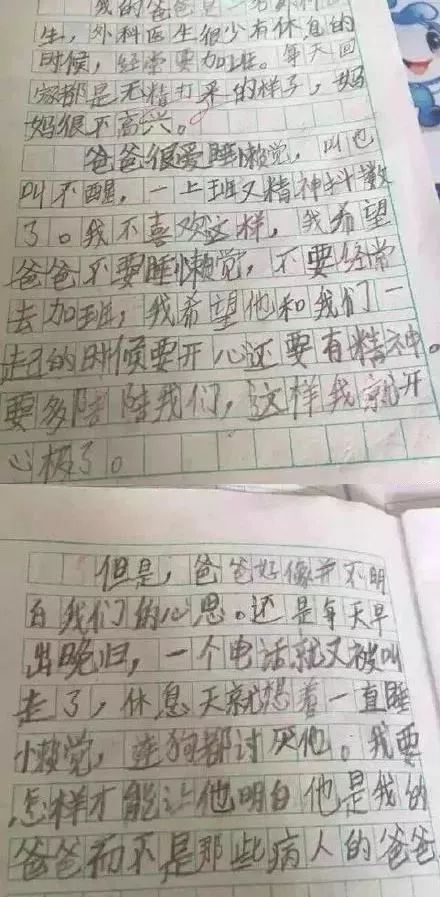 我的爸爸是一名外科医
生，外科医生很少有休息的
时候，经常要加班。每天回
家都是无精打采的样子，妈
妈很不高兴。
爸爸很爱睡懒觉，叫也
叫不醒，一上班又精神抖擞
了。我不喜欢这样，我希望
爸爸不要睡懒觉，不要经常
去加班，我希望他和我们一
起的时候要开心还要有精神。
要多陪陪我们，这样我就开
心极了。
但是，爸爸好像并不明
白我们的心思。还是每天早
出晚归，一个电话就又被叫
走了，休息天就想着一直睡
懒觉，连狗都讨厌他。我要
怎样才能让他明白他是我的
爸爸而不是那些病人的爸爸